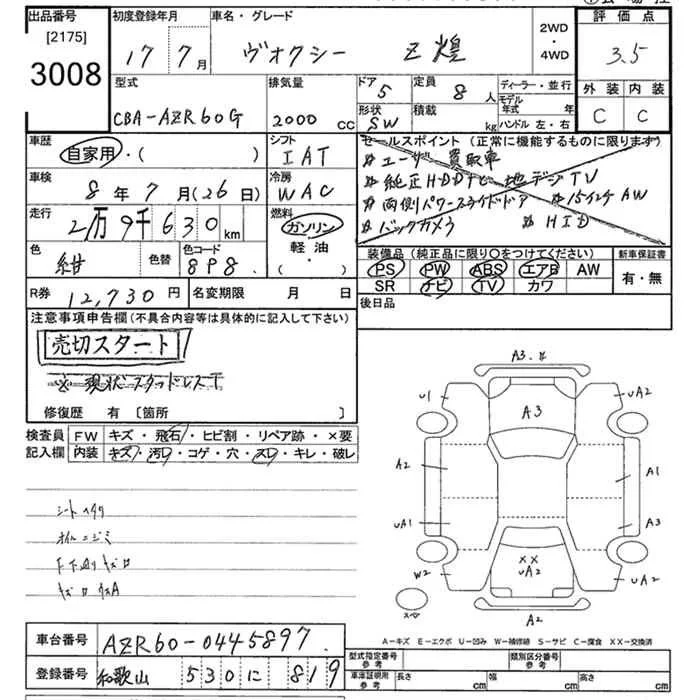 出品番号 初度登録年月 車名・グレード 2WD・4WD 評価点
[2175]
3008 17 7月 ヴォクシー Z煌 3.5
型式 排気量 ドア 5 定員 8人 ディーラー・並行 外装 内装
CBA-AZR60G 2000cc 形状 SW 積載 kg モデル年式 年 ハンドル 左・右 C C
車歴 自家用・( ) シフト IAT
セールスポイント (正常に機能するものに限ります)
※ユーザー買取車
車検 8年7月(26日) 冷房 WAC
※純正HDDナビ・地デジTV
※両側パワースライドドア ※15インチAW
走行 2万9千630km 燃料 ガソリン 軽油・( )
※バックカメラ ※HID
色 紺 色替 色コード 8P8
装備品 (純正品に限り〇をつけてください) 新車保証書
PS PW ABS エアB AW 有・無
SR ナビ TV カワ
R券 12,730円 名変期限 月 日
後日品
注意事項申告欄(不具合内容等は具体的に記入して下さい)
売切スタート
※現状スタッドレス
修復歴 有 [箇所 ]
検査員 FW キズ・飛石・ヒビ割・リペア跡・×要
記入欄 内装 キズ・汚レ・コゲ・穴・スレ・キレ・破レ
シートヘタリ
オイルニジミ
下廻りキズ
A3
A3
U1
UA2
A2
A1
UA1
A3
XX
UA2
W2
UA2
スペ
A2
A－キズ E－エクボ U－凹み W－補修跡 S－サビ C－腐食 XX－交換済
車台番号 AZR60-0445897
型式指定番号 参考 類別区分番号 参考
登録番号 和歌山 530 に 819
車庫証明用 参考 長さ cm 幅 cm 高さ cm